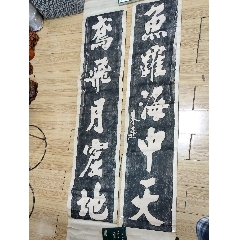 魚躍海中天
鳶飛月窟地